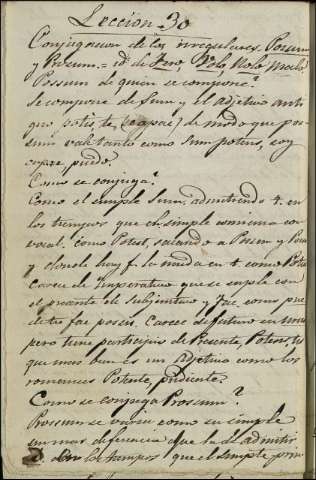 Leccion 30
Conjugacion de los irregulares. Possum
y Prosum = id. de Fero, Volo, Nolo, Malo
Possum de quien se compone?
Se compone de Sum y el adjetivo anti
guo potis, te, (capaz) de modo que pos-
sum vale tanto como Sum potens, soy
capaz, puedo.
Como se conjuga?
Como el simple Sum, admitiendo t. en
los tiempos que el simple comienza con
vocal. como Potest, sacando a Posem y Posse
y donde hay f. la muda en t como Potui
Carece de Imperativo que se suple con
el presente de Subjuntivo y Fac, como
fac possis. Carece de futuro en
pero tiene participio de Presente, Potens, tis
que mas bien es un adjetivo como los
romances Potente, pudiente.
Como se conjuga Prosum?
Prossum se varia como su simple
sin mas diferencia que la de admitir
d. en los tiempos que el simple prin